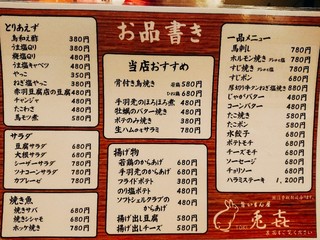 お品書き
とりあえず
鳥和え酢 380円
うま塩Qり 380円
梅塩Qり 480円
うま塩キャベツ 480円
やっこ 350円
ねぎ塩やっこ 380円
赤羽豆腐店の豆腐 480円
チャンジャ 480円
たこわさ 480円
鳥モツ煮 580円
サラダ
豆腐サラダ 580円
大根サラダ 580円
シーザーサラダ 780円
ツナコーンサラダ 780円
カプレーゼ 780円
焼き魚
焼きサバ 680円
焼きシシャモ 580円
ホッケ焼き 780円
当店おすすめ
骨付き鳥焼き 若鶏 580円
ひね鶏 680円
手羽先のほろほろ煮 480円
牡蠣のバター焼き 480円
ポテのみ焼き 380円
生ハムのせサラミ 780円
揚げ物
若鶏のからあげ 680円
手羽先のからあげ 580円
フライドポテト 380円
のり塩ポテト 480円
ソフトシェルクラブの
からあげ 480円
揚げ出し豆腐 580円
揚げ出しチーズ 580円
一品メニュー
馬刺し 780円
ホルモン焼き 780円
すじ焼き 780円
すじポン 680円
厚切り牛タンねぎ塩焼き 980円
じゃがバター 480円
コーンバター 480円
たこ焼き 580円
たこポン 580円
水餃子 680円
ポテトモチ 580円
チーズモチ 680円
ソーセージ 680円
チョリソー 680円
ハラミステーキ 1,200円